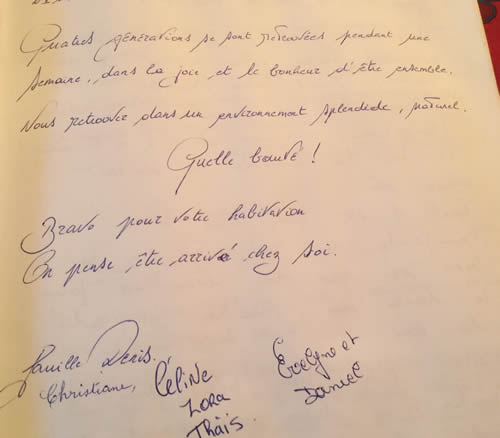 Quatres générations se sont retrouvées pendant une
semaine, dans la joie et le bonheur d'être ensemble.
Nous retrouver dans un environnement splendide, naturel.
Quelle beauté !
Bravo pour votre habitation
On pense être arrivé chez soi.
famille Denis.
Christiane,
Céline
Zora
Thaïs.
Evelyne et
Daniel